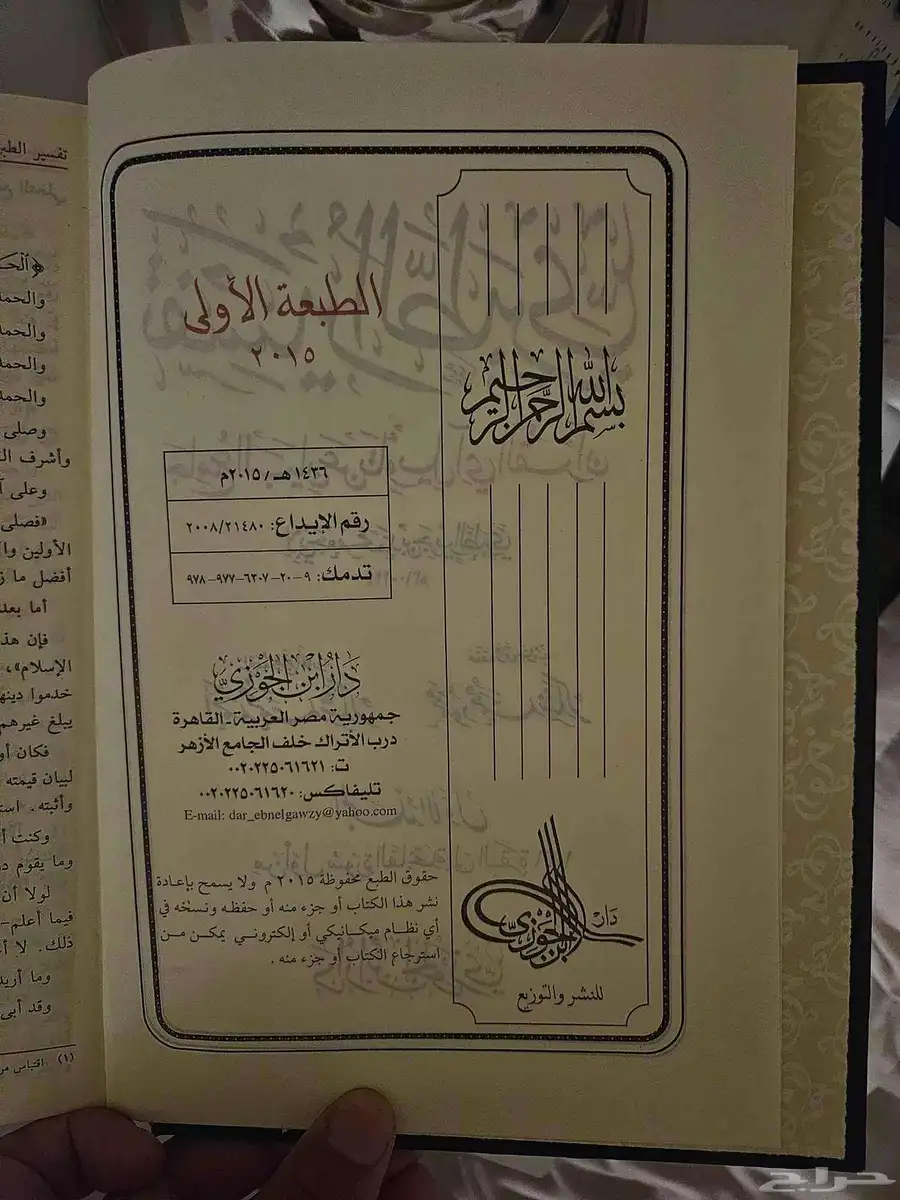 بسم الله الرحمن الرحيم
دار
ابن الجوزي
للنشر والتوزيع
الطبعة الأولى
٢٠١٥
١٤٣٦هـ/٢٠١٥م
رقم الإيداع: ٢٠٠٨/٢١٤٨٠
تدمك: ٩-٢٠-٦٣٠٧-٩٧٧-٩٧٨
دَارُ ابْنِ الجَوْزِي
جمهورية مصر العربية - القاهرة
درب الأتراك خلف الجامع الأزهر
ت: ٠٠٢٠٢٢٥٠٦١٦٢١
تليفاكس: ٠٠٢٠٢٢٥٠٦١٦٢٠
E-mail: dar_ebnelgawzy@yahoo.com
حقوق الطبع محفوظة ٢٠١٥ م ولا يسمح بإعادة
نشر هذا الكتاب أو جزء منه أو حفظه ونسخه في
أي نظام ميكانيكي أو إلكتروني يمكن من
استرجاع الكتاب أو جزء منه .
تفسير
والحمد
والحمد
وصلى
وأشرف
وعلى
«فصلى
الأولين
أفضل ما
أما بعد
فإن هذ
الإسلام»،
خدموا دينه
يبلغ غيرهم
فكان أو
لبيان قيمته
وأثبته. است
وكنت أ
وما يقوم
لولا أن
فيما أعلم-
ذلك. لا
وما أريد
وقد أبى
(١) اقتباس
حراج